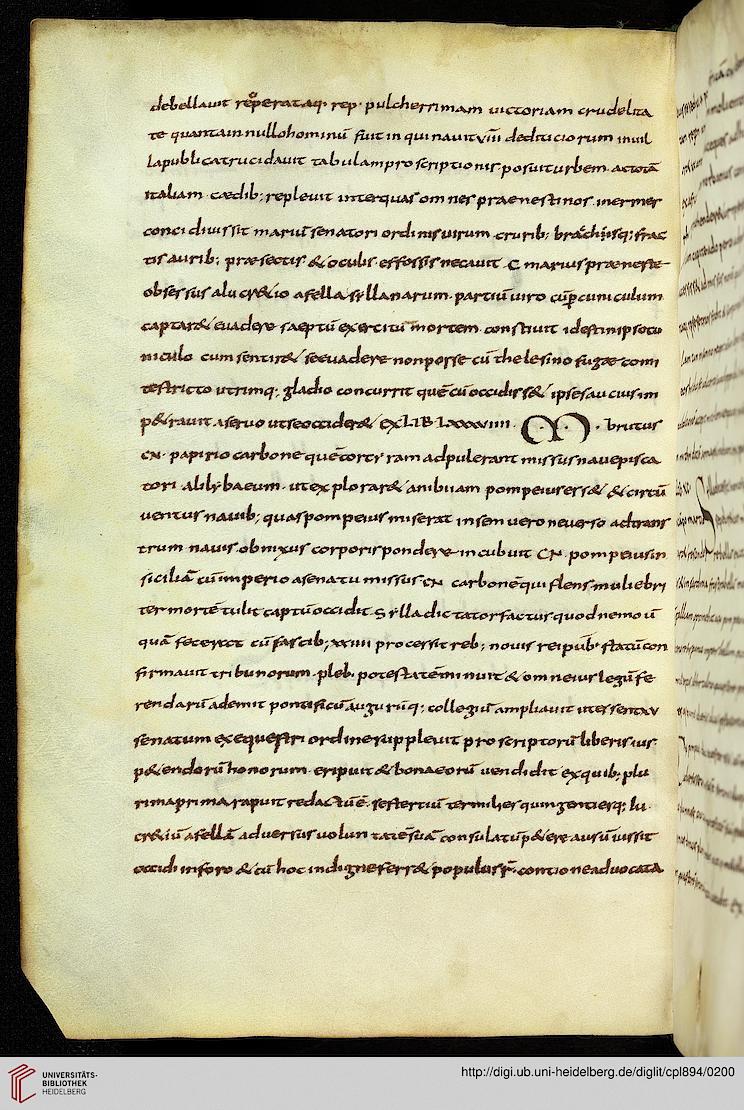 debellauit reoperataq; rep· pulcherrimam uictoriam crudelita
te quantain nullohominū fuit in quinauit VIII dediticiorum inuil
la publica trucidauit tabulam proscriptionis posuit urbem actotā
italiam cædib; repleuit interquas omnes praenestinos inermes
concidiiussit mariū senatori ordinis uirum crurib; brachiisq; frac
tis aurib; præsectis & oculis effossis necauit C marius præneste
obsessus alucr&io afella syllanarum partiū uiro cūp cuniculum
captar& euadere saeptū exercitū mortem consciuit id est in ipso cu
niculo cum sentir& se euadere non posse cū thelesino fugae comi
te stricto utrimq; gladio concurrit quē cū occidiss& ipse saucius im
p&rauit aseruo utse occider& ex LIB LXXXVIIII · M · brutus
CN· papirio carbone quē corcyram adpulerant missus naue pisca
tori alilybaeum ut explorar& an ibi iam pompeius ess& & circū
uentus nauib; quas pompeius miserat in se muerone uerso adtrans
trum nauis obnixus corporis pondere incubuit CN· pompeius in
siciliā cū imperio asenatu missus CN carbonē qui flens muliebri
ter mortē tulit captū occidit sylla dictator factus quod nemo ū
quā fecerat cū fascib; XXIIII processit reb; nouis reipub· statū con
firmauit tribunorum pleb· potestatē minuit & omne ius legū fe
rendarū ademit pontificū augurūq; collegiū ampliauit ut essent XV
senatum ex equestri ordine suppleuit proscriptorū liberis ius
p&endorū honorum eripuit & bona eorū uendidit ex quib; plu
rima prima rapuit redactū ē sestertiū ter milies quingenties q; lu
cr&iū afellā aduersus uoluntatē suā consulatū p&ere ausū iussit
occidi in foro & cū hoc indigne ferr& populus r̄· contione aduocata
UNIVERSITÄTS-
BIBLIOTHEK
HEIDELBERG
http://digi.ub.uni-heidelberg.de/diglit/cpl894/0200